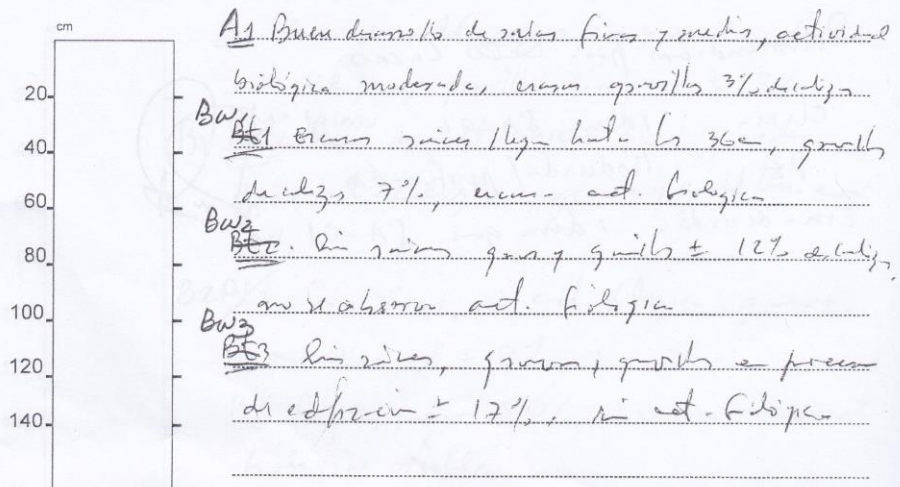 cm
A1 Buen desarrollo de raices finas y medias, actividad
20 biológica moderada, escasas gravillas 3% de caliza
Bw1
40 Bt1 Escasas raices llegan hasta los 36cm, gravillas
60 de caliza 7%, escasa act. biologica
Bw2
80 Bt2. Sin raices gravas y gravillas ± 12% de caliza,
100 no se observan act. biologica
Bw3
120 Bt3 Sin raices, gravas, gravillas en proceso
140 de edafización ± 17%, sin act. biológica